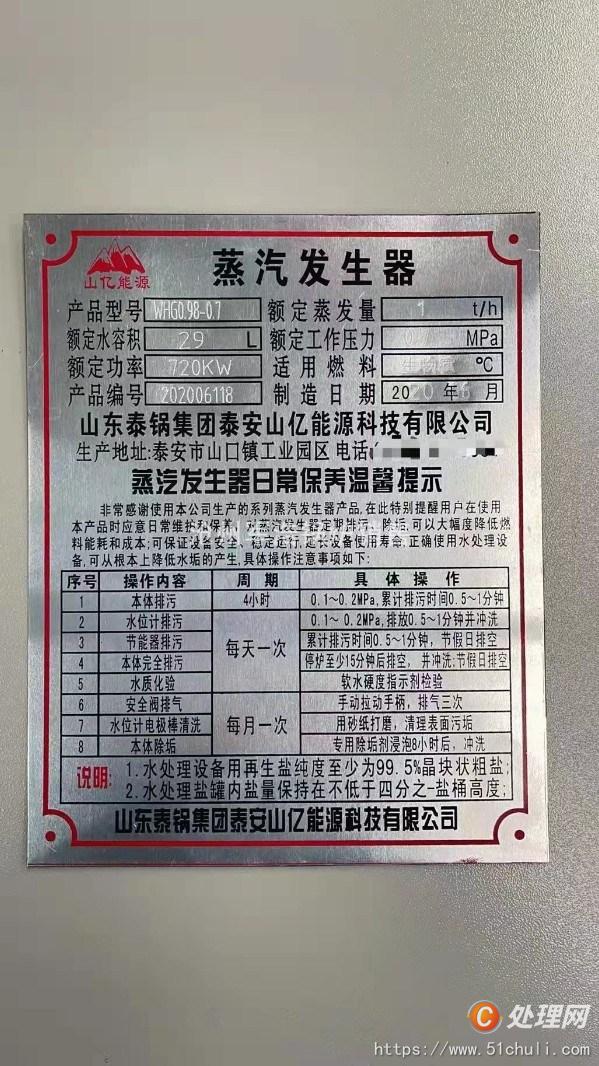 山亿能源
蒸汽发生器
产品型号 WHG0.98-0.7 额定蒸发量 1 t/h
额定水容积 29 L 额定工作压力 MPa
额定功率 720KW 适用燃料 生物质 ℃
产品编号 202006118 制造日期 2020年6月
山东泰锅集团泰安山亿能源科技有限公司
生产地址:泰安市山口镇工业园区 电话:
蒸汽发生器日常保养温馨提示
非常感谢使用本公司生产的系列蒸汽发生器产品,在此特别提醒用户在使用
本产品时应意日常维护及保养,对蒸汽发生器定期排污、除垢,可以大幅度降低燃
料能耗和成本;可保证设备安全、稳定运行,延长设备使用寿命,正确使用水处理设
备,可从根本上降低水垢的产生,具体操作注意事项如下:
序号 操作内容 周期 具体操作
1 本体排污 4小时 0.1~0.2MPa,累计排污时间0.5~1分钟
2 水位计排污 每天一次 0.1~0.2MPa,排放0.5~1分钟并冲洗
3 节能器排污 累计排污时间0.5~1分钟,节假日排空
4 本体完全排污 停炉至少15分钟后排空,并冲洗;节假日排空
5 水质化验 软水硬度指示剂检验
6 安全阀排气 每月一次 手动拉动手柄,排气三次
7 水位计电极棒清洗 用砂纸打磨,清理表面污垢
8 本体除垢 专用除垢剂浸泡8小时后,冲洗
说明:1.水处理设备用再生盐纯度至少为99.5%晶块状粗盐;
2.水处理盐罐内盐量保持在不低于四分之一盐桶高度;
山东泰锅集团泰安山亿能源科技有限公司
C处理网
https://www.51chuli.com